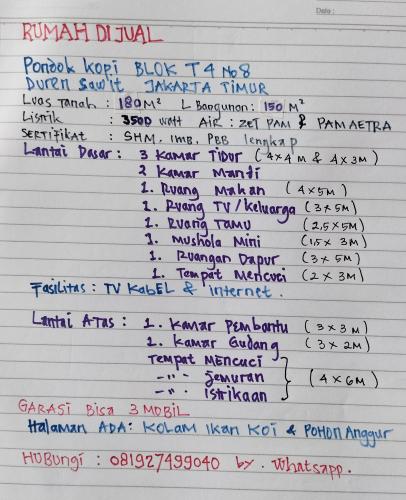 Date :
RUMAH DIJUAL
Pondok Kopi BLOK T4 No 8
Duren Sawit JAKARTA TIMUR
Luas Tanah : 180 M² L Bangunan : 150 M²
Listrik : 3500 watt AIR : ZET PAM & PAM AETRA
SERTIFIKAT : SHM, IMB, PBB lengkap
Lantai Dasar : 3 Kamar Tidur (4x4 M & 4x3M)
2 Kamar Mandi
1. Ruang Makan (4x5M)
1. Ruang TV/Keluarga (3x5M)
1. Ruang Tamu (2,5x5M)
1. Mushola Mini (1,5x 3M)
1. Ruangan Dapur (3x 5M)
1. Tempat Mencuci (2x 3M)
Fasilitas : TV KabEL & Internet .
Lantai Atas : 1. Kamar Pembantu (3x3 M)
1. Kamar Gudang (3x 2M)
Tempat Mencuci
-"- Jemuran (4 x 6M)
-"- Istrikaan
GARASI Bisa 3 MOBIL
Halaman ADA : KOLAM IKAN KOI & POHON Anggur
HUBUNGI : 081927499040 by . Whatsapp .